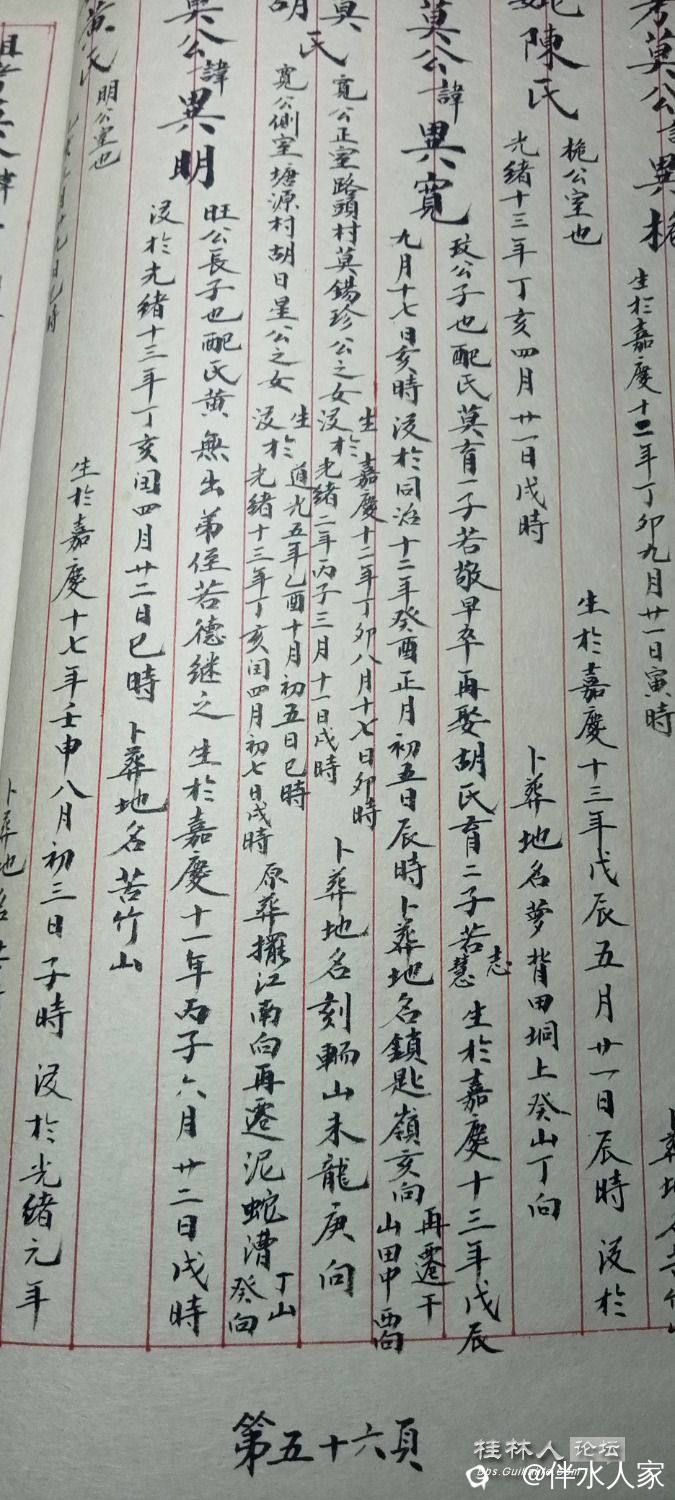 考莫公諱異桅
生於嘉慶十二年丁卯九月廿一日寅時
陳氏
桅公室也
生於嘉慶十三年戊辰五月廿一日辰時 没於
光緒十三年丁亥四月廿一日戌時
卜葬地名萝背田垌上癸山丁向
莫公諱異寬
玟公子也配氏莫育一子若敬早卒再娶胡氏育二子若志慧 生於嘉慶十三年戊辰
九月十七日亥時 没於同治十二年癸酉正月初五日辰時卜葬地名鎖匙嶺亥向 再遷干山田中酉向
莫氏
寬公正室路頭村莫錫珍公之女 生於嘉慶十二年丁卯八月十七日卯時 没於光緒二年丙子三月十一日戌時
卜葬地名刻輀山未龍庚向
胡氏
寬公側室塘源村胡日星公之女 生於道光五年乙酉十月初五日巳時 没於光緒十三年丁亥闰四月初七日戌時
原葬擺江南向再遷泥蛇漕丁山癸向
莫公諱異明
旺公長子也配氏黄無出弟侄若德继之 生於嘉慶十一年丙子六月廿二日戌時
没於光緒十三年丁亥闰四月廿二日巳時 卜葬地名苦竹山
黄氏
明公室也
生於嘉慶十七年壬申八月初三日子時 没於光緒元年
卜葬地名
第五十六頁
桂林人论坛
@伴水人家